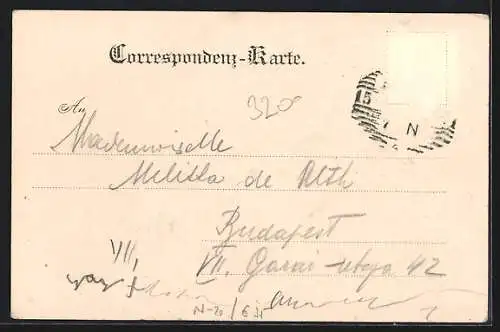 Correspondenz-Karte.
3200
An
Mademoiselle
Melitta de Alth
Budapest
VII. Garai-utcza 42
VII,
N